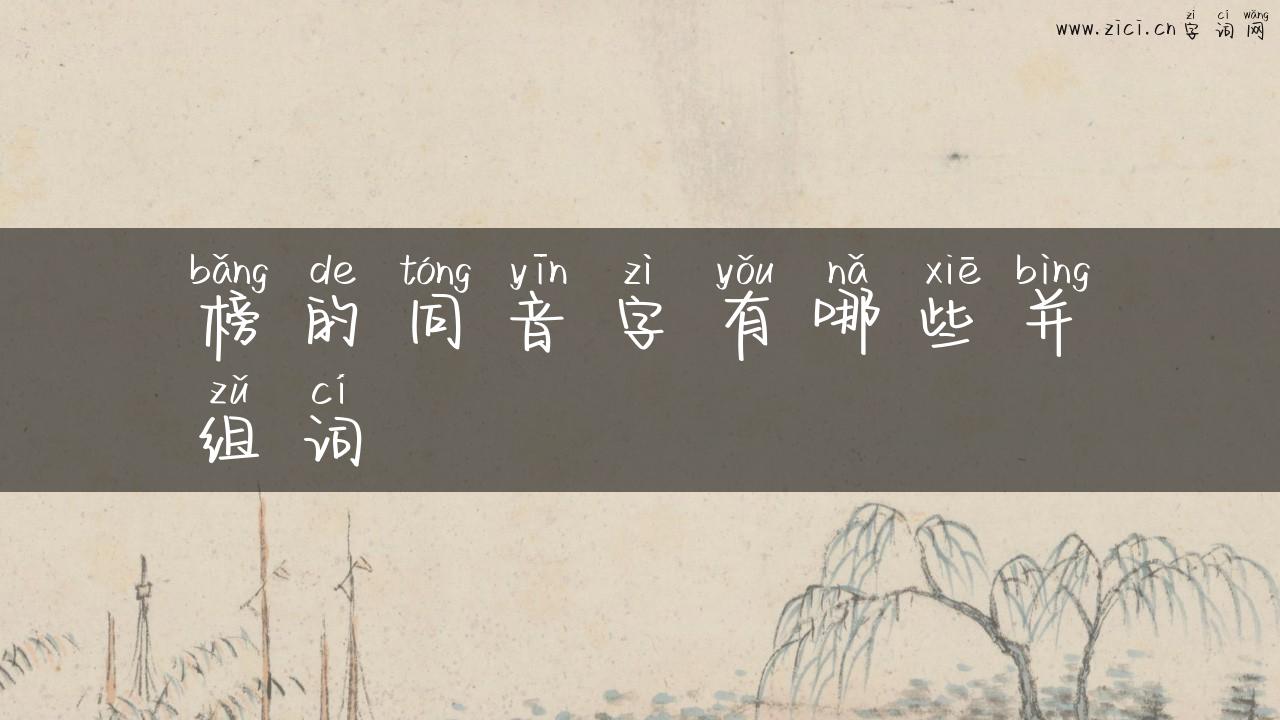 zì cí wǎng
www.zici.cn 字 词 网
bǎng de tóng yīn zì yǒu nǎ xiē bìng
榜 的 同 音 字 有 哪 些 并
zǔ cí
组 词